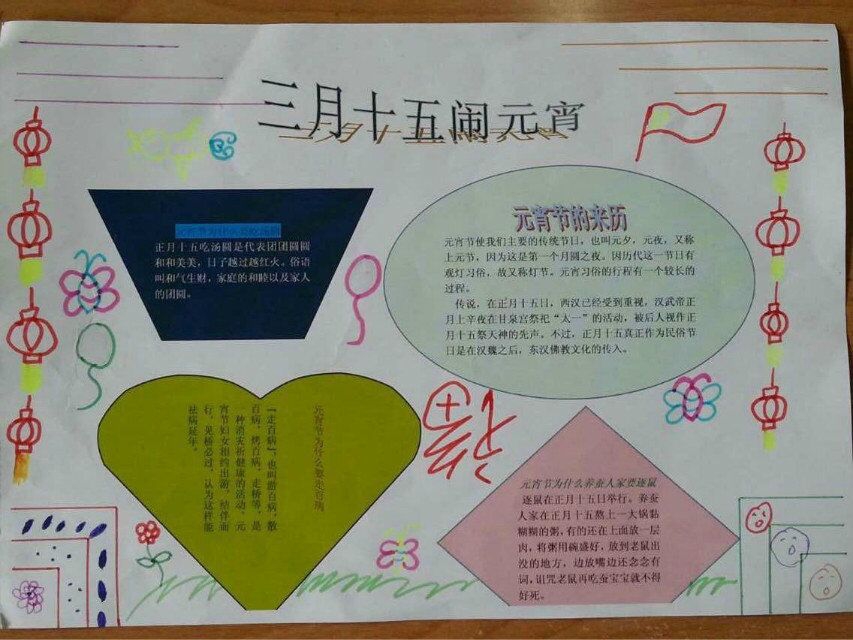 三月十五闹元宵
元宵节为什么要吃汤圆
正月十五吃汤圆是代表团团圆圆
和和美美，日子越过越红火。俗语
叫和气生财，家庭的和睦以及家人
的团圆。
元宵节的来历
元宵节使我们主要的传统节日，也叫元夕，元夜，又称
上元节，因为这是第一个月圆之夜。因历代这一节日有
观灯习俗，故又称灯节。元宵习俗的行程有一个较长的
过程。
传说，在正月十五日，西汉已经受到重视，汉武帝正
月上辛夜在甘泉宫祭祀“太一”的活动，被后人视作正
月十五祭天神的先声。不过，正月十五真正作为民俗节
日是在汉魏之后，东汉佛教文化的传入。
元宵节为什么要走百病
“走百病”，也叫游百病，散
百病，烤百病，走桥等，是
一种消灾祈健康的活动。元
宵节妇女相约出游，结伴而
行，见桥必过，认为这样能
祛病延年。
福
元宵节为什么养蚕人家要逐鼠
逐鼠在正月十五日举行。养蚕
人家在正月十五熬上一大锅黏
糊糊的粥，有的还在上面放一层
肉，将粥用碗盛好，放到老鼠出
没的地方，边放嘴边还念念有
词，诅咒老鼠再吃蚕宝宝就不得
好死。